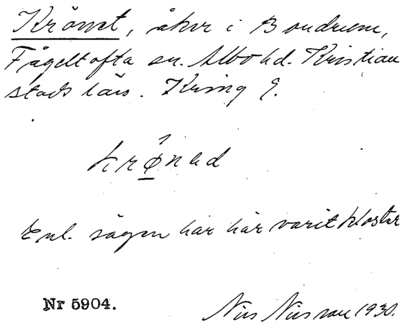 Krönet, åker i Bondrum,
Fågeltofta sn. Albo hd. Kristian
stads län.
krǿnəd
Enl. sägen har här varit kloster
Nr 5904.
Nils Nilsson 1930.